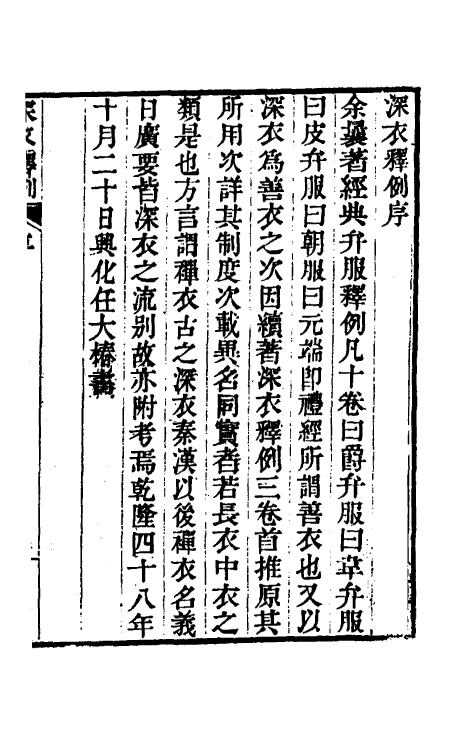 深衣釋例序
余曩著經典弁服釋例凡十卷曰爵弁服曰韋弁服
曰皮弁服曰朝服曰元端即禮經所謂善衣也又以
深衣為善衣之次因續著深衣釋例三卷首推原其
所用次詳其制度次載異名同實者若長衣中衣之
類是也方言謂禪衣古之深衣秦漢以後禪衣名義
日廣要皆深衣之流別故亦附考焉乾隆四十八年
十月二十日興化任大椿書
深衣釋例